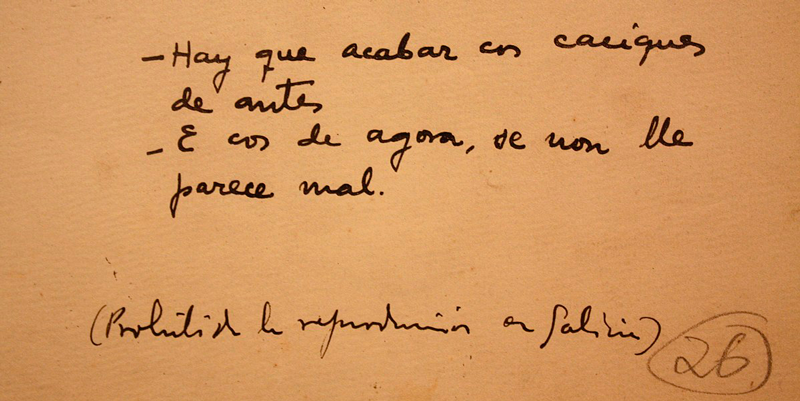 – Hay que acabar cos caciques
de antes
– E cos de agora, se non lle
parece mal.
(Prohibida la reproducción en Galicia)
26